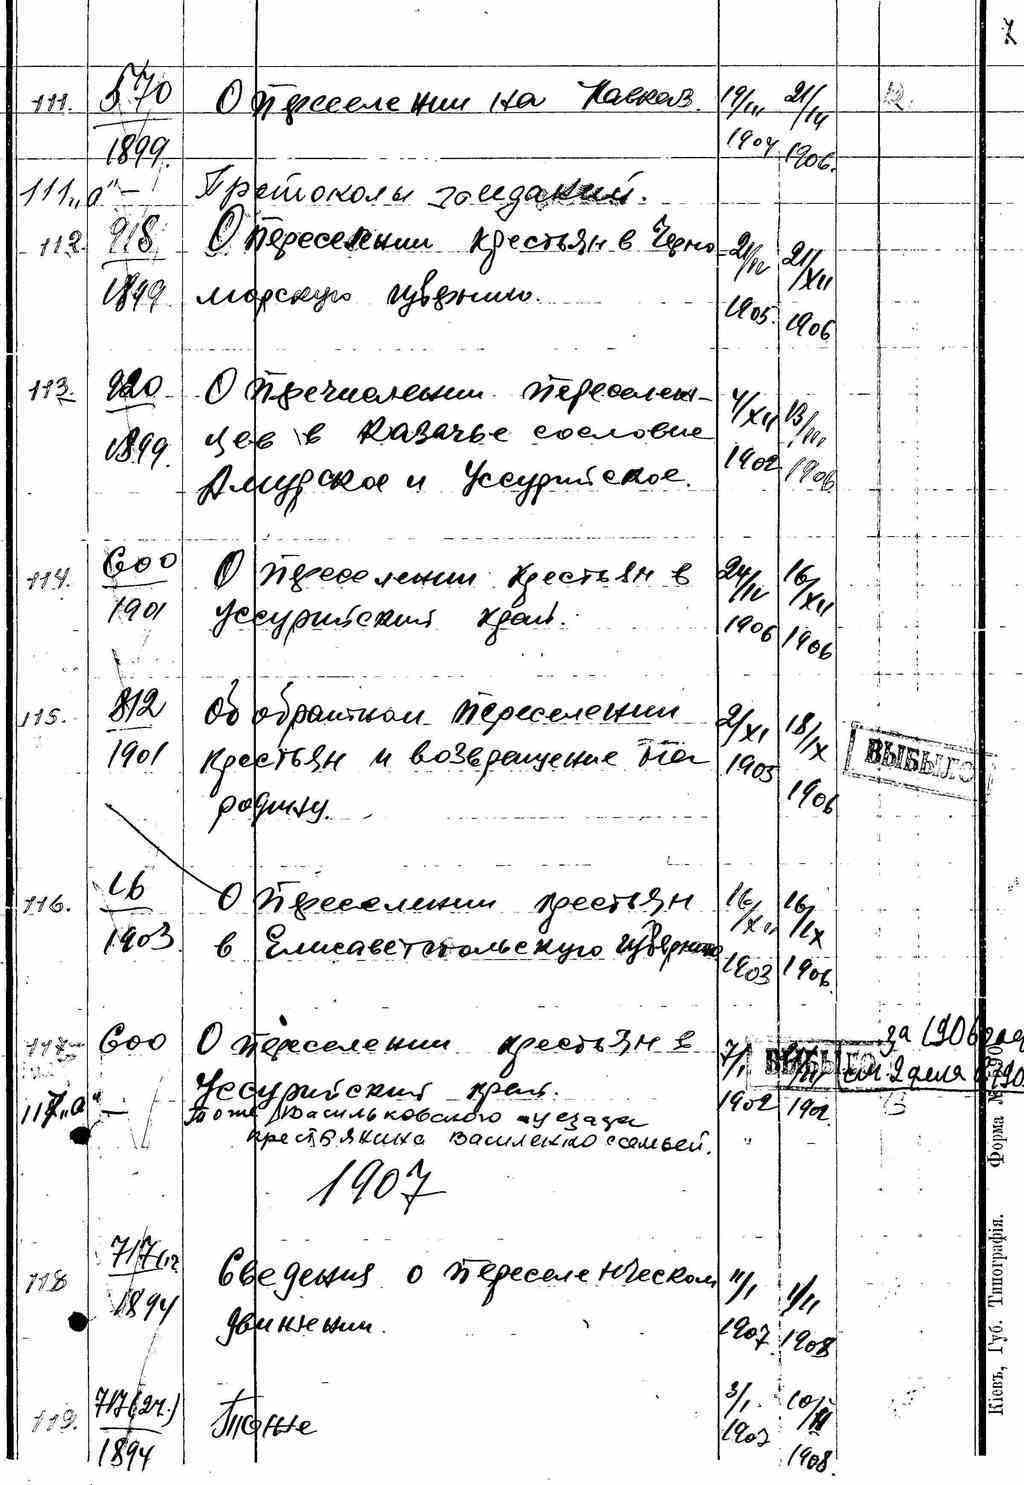 7
111. 570 О переселении на Кавказ. 19/III 21/IV
1899. 1904 1906.
111 „а“ — Протоколы заседаний.
112 918 О переселении крестьян в Черно- 21/IV 21/XII
1899 морскую губернию. 1905. 1906
113. 920 О пречислении переселен- 4/XII 13/III
1899. цев в казачье сословие 1902 1906
Амурское и Уссурийское.
114. 600 О переселении крестьян в 24/IV 16/XII
1901 Уссурийский край. 1906 1906
115. 812 Об обратном переселении 2/XI 18/IX
1901 крестьян и возвращение на 1903 ВЫБЫЛО
родину. 1906
116. 16 О переселении крестьян 16/XII 16/IX
1903 в Елисаветпольскую губернию 1903 1906.
117 600 О переселении крестьян в 7/I ВЫБЫЛО за 1906 год
Уссурийский край. 1902 1902. см 2 дела
117 „а“ — Тоже Васильковского уезда
крестьянина Василенко с семьей.
1907
118 717 Сведения о переселенческом 11/I 1/II
1894 движении. 1907 1908
119. 717 (2ч.) Тоже 3/I 10/II
1894 1907 1908.
Кіевъ, Губ. Типографія. Форма №